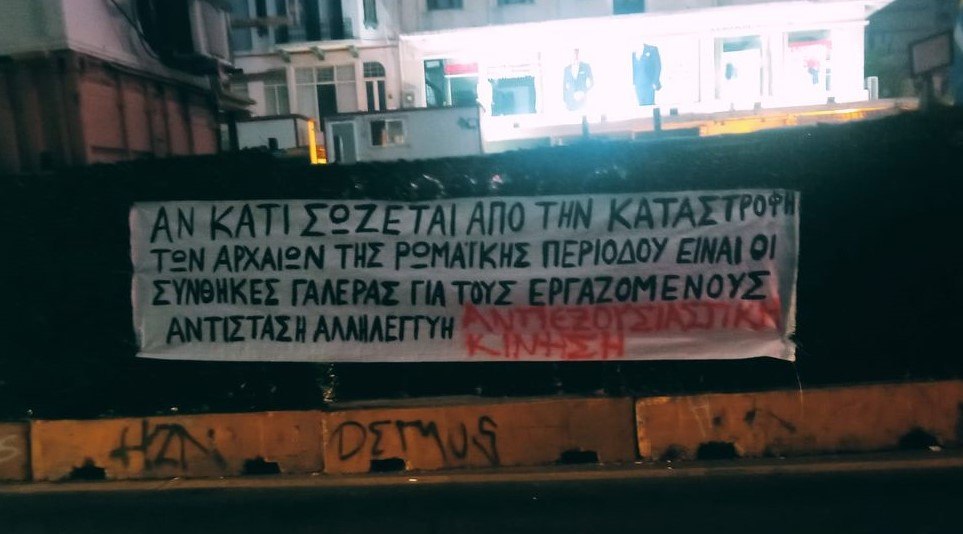 ΑΝ ΚΑΤΙ ΣΩΖΕΤΑΙ ΑΠΟ ΤΗΝ ΚΑΤΑΣΤΡΟΦΗ
ΤΩΝ ΑΡΧΑΙΩΝ ΤΗΣ ΡΩΜΑΪΚΗΣ ΠΕΡΙΟΔΟΥ ΕΙΝΑΙ ΟΙ
ΣΥΝΘΗΚΕΣ ΓΑΛΕΡΑΣ ΓΙΑ ΤΟΥΣ ΕΡΓΑΖΟΜΕΝΟΥΣ
ΑΝΤΙΣΤΑΣΗ ΑΛΛΗΛΕΓΓΥΗ ΑΝΤΙΕΞΟΥΣΙΑΣΤΙΚΗ
ΚΙΝΗΣΗ
HZN DEMUS